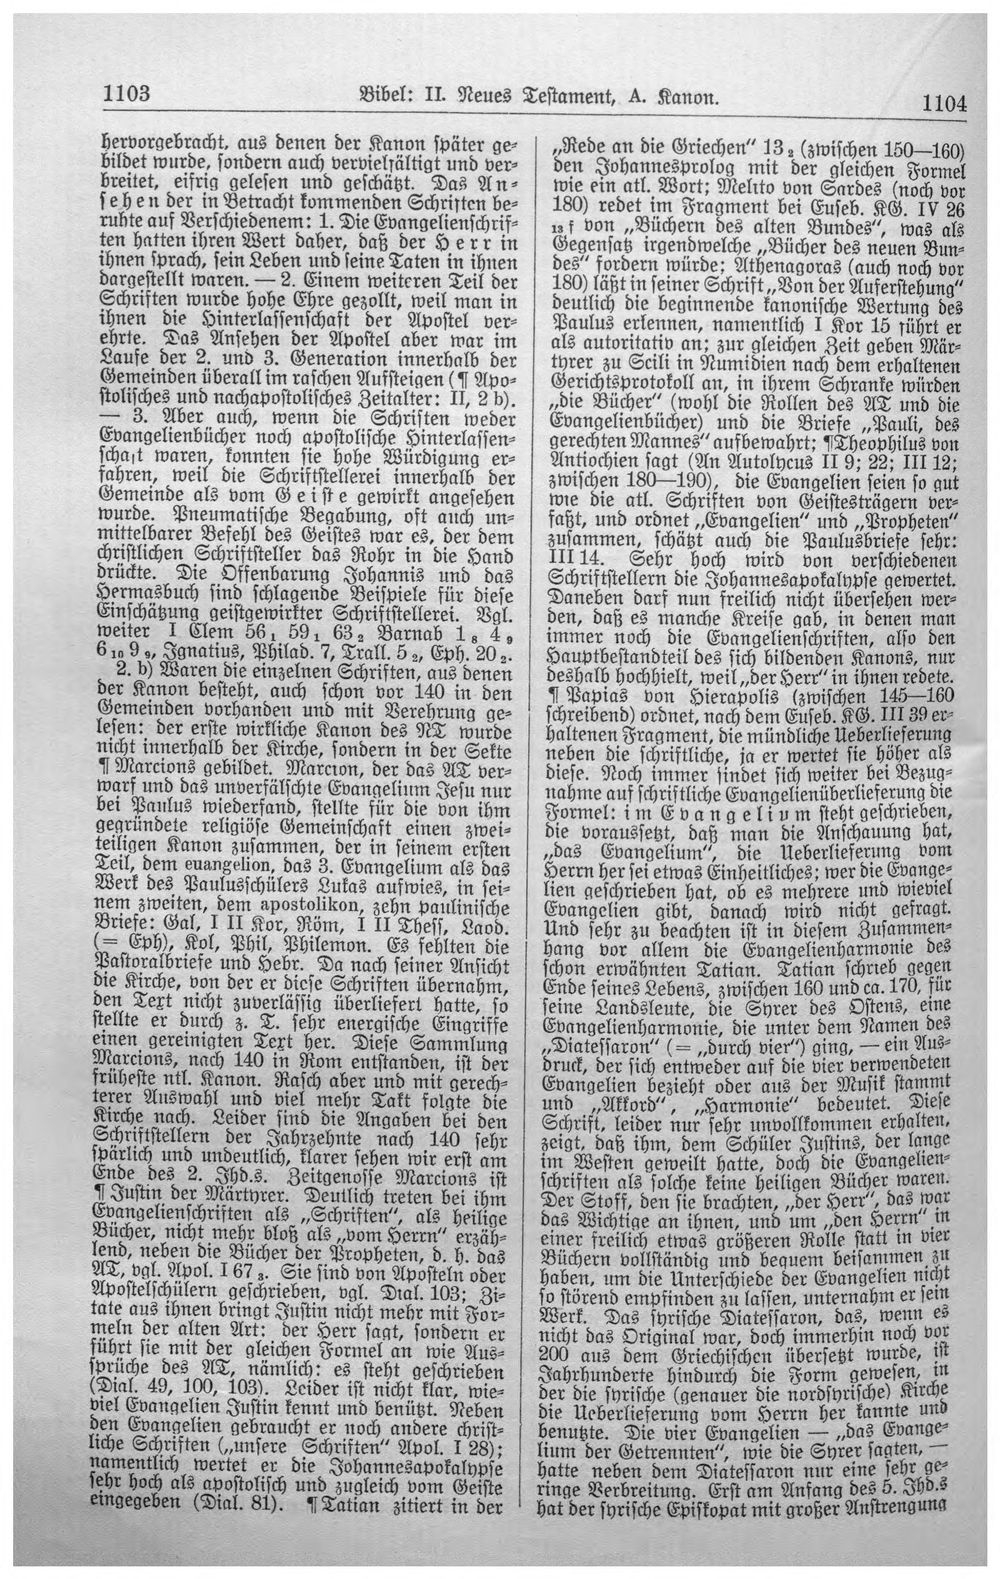 1103
Bibel: II. Neues Testament, A. Kanon.
1104
hervorgebracht, aus denen der Kanon später ge-
bildet wurde, sondern auch vervielfältigt und ver-
breitet, eifrig gelesen und geschätzt. Das An-
sehen der in Betracht kommenden Schriften be-
ruhte auf Verschiedenem: 1. Die Evangelienschrif-
ten hatten ihren Wert daher, daß der Herr in
ihnen sprach, sein Leben und seine Taten in ihnen
dargestellt waren. — 2. Einem weiteren Teil der
Schriften wurde hohe Ehre gezollt, weil man in
ihnen die Hinterlassenschaft der Apostel ver-
ehrte. Das Ansehen der Apostel aber war im
Laufe der 2. und 3. Generation innerhalb der
Gemeinden überall im raschen Aufsteigen (¶ Apo-
stolisches und nachapostolisches Zeitalter: II, 2 b).
— 3. Aber auch, wenn die Schriften weder
Evangelienbücher noch apostolische Hinterlassen-
schaft waren, konnten sie hohe Würdigung er-
fahren, weil die Schriftstellerei innerhalb der
Gemeinde als vom Geiste gewirkt angesehen
wurde. Pneumatische Begabung, oft auch un-
mittelbarer Befehl des Geistes war es, der dem
christlichen Schriftsteller das Rohr in die Hand
drückte. Die Offenbarung Johannis und das
Hermasbuch sind schlagende Beispiele für diese
Einschätzung geistgewirkter Schriftstellerei. Vgl.
weiter I Clem 56₁ 59₁ 63₂ Barnab 1₈ 4₉
6₁₀ 9₉, Ignatius, Philad. 7, Trall. 5₂, Eph. 20₂.
2. b) Waren die einzelnen Schriften, aus denen
der Kanon besteht, auch schon vor 140 in den
Gemeinden vorhanden und mit Verehrung ge-
lesen: der erste wirkliche Kanon des NT wurde
nicht innerhalb der Kirche, sondern in der Sekte
¶ Marcions gebildet. Marcion, der das AT ver-
warf und das unverfälschte Evangelium Jesu nur
bei Paulus wiederfand, stellte für die von ihm
gegründete religiöse Gemeinschaft einen zwei-
teiligen Kanon zusammen, der in seinem ersten
Teil, dem euangelion, das 3. Evangelium als das
Werk des Paulusschülers Lukas aufwies, in sei-
nem zweiten, dem apostolikon, zehn paulinische
Briefe: Gal, I II Kor, Röm, I II Thess, Laod.
(= Eph), Kol, Phil, Philemon. Es fehlten die
Pastoralbriefe und Hebr. Da nach seiner Ansicht
die Kirche, von der er diese Schriften übernahm,
den Text nicht zuverlässig überliefert hatte, so
stellte er durch z. T. sehr energische Eingriffe
einen gereinigten Text her. Diese Sammlung
Marcions, nach 140 in Rom entstanden, ist der
früheste ntl. Kanon. Rasch aber und mit gerech-
terer Auswahl und viel mehr Takt folgte die
Kirche nach. Leider sind die Angaben bei den
Schriftstellern der Jahrzehnte nach 140 sehr
spärlich und undeutlich, klarer sehen wir erst am
Ende des 2. Jhd.s. Zeitgenosse Marcions ist
¶ Justin der Märtyrer. Deutlich treten bei ihm
Evangelienschriften als „Schriften“, als heilige
Bücher, nicht mehr bloß als „vom Herrn“ erzäh-
lend, neben die Bücher der Propheten, d. h. das
AT, vgl. Apol. I 67₃. Sie sind von Aposteln oder
Apostelschülern geschrieben, vgl. Dial. 103; Zi-
tate aus ihnen bringt Justin nicht mehr mit For-
meln der alten Art: der Herr sagt, sondern er
führt sie mit der gleichen Formel an wie Aus-
sprüche des AT, nämlich: es steht geschrieben
(Dial. 49, 100, 103). Leider ist nicht klar, wie-
viel Evangelien Justin kennt und benützt. Neben
den Evangelien gebraucht er noch andere christ-
liche Schriften („unsere Schriften“ Apol. I 28);
namentlich wertet er die Johannesapokalypse
sehr hoch als apostolisch und zugleich vom Geiste
eingegeben (Dial. 81). ¶ Tatian zitiert in der
„Rede an die Griechen“ 13₂ (zwischen 150—160)
den Johannesprolog mit der gleichen Formel
wie ein atl. Wort; Melito von Sardes (noch vor
180) redet im Fragment bei Euseb. KG. IV 26
₁₃ f von „Büchern des alten Bundes“, was als
Gegensatz irgendwelche „Bücher des neuen Bun-
des“ fordern würde; Athenagoras (auch noch vor
180) läßt in seiner Schrift „Von der Auferstehung“
deutlich die beginnende kanonische Wertung des
Paulus erkennen, namentlich I Kor 15 führt er
als autoritativ an; zur gleichen Zeit geben Mär-
tyrer zu Scili in Numidien nach dem erhaltenen
Gerichtsprotokoll an, in ihrem Schranke würden
„die Bücher“ (wohl die Rollen des AT und die
Evangelienbücher) und die Briefe „Pauli, des
gerechten Mannes“ aufbewahrt; ¶Theophilus von
Antiochien sagt (An Autolycus II 9; 22; III 12;
zwischen 180—190), die Evangelien seien so gut
wie die atl. Schriften von Geistesträgern ver-
faßt, und ordnet „Evangelien“ und „Propheten“
zusammen, schätzt auch die Paulusbriefe sehr:
III 14. Sehr hoch wird von verschiedenen
Schriftstellern die Johannesapokalypse gewertet.
Daneben darf nun freilich nicht übersehen wer-
den, daß es manche Kreise gab, in denen man
immer noch die Evangelienschriften, also den
Hauptbestandteil des sich bildenden Kanons, nur
deshalb hochhielt, weil „der Herr“ in ihnen redete.
¶ Papias von Hierapolis (zwischen 145—160
schreibend) ordnet, nach dem Euseb. KG. III 39 er-
haltenen Fragment, die mündliche Ueberlieferung
neben die schriftliche, ja er wertet sie höher als
diese. Noch immer findet sich weiter bei Bezug-
nahme auf schriftliche Evangelienüberlieferung die
Formel: im Evangelium steht geschrieben,
die voraussetzt, daß man die Anschauung hat,
„das Evangelium“, die Ueberlieferung vom
Herrn her sei etwas Einheitliches; wer die Evange-
lien geschrieben hat, ob es mehrere und wieviel
Evangelien gibt, danach wird nicht gefragt.
Und sehr zu beachten ist in diesem Zusammen-
hang vor allem die Evangelienharmonie des
schon erwähnten Tatian. Tatian schrieb gegen
Ende seines Lebens, zwischen 160 und ca. 170, für
seine Landsleute, die Syrer des Ostens, eine
Evangelienharmonie, die unter dem Namen des
„Diatessaron“ (= „durch vier“) ging, — ein Aus-
druck, der sich entweder auf die vier verwendeten
Evangelien bezieht oder aus der Musik stammt
und „Akkord“, „Harmonie“ bedeutet. Diese
Schrift, leider nur sehr unvollkommen erhalten,
zeigt, daß ihm, dem Schüler Justins, der lange
im Westen geweilt hatte, doch die Evangelien-
schriften als solche keine heiligen Bücher waren.
Der Stoff, den sie brachten, „der Herr“, das war
das Wichtige an ihnen, und um „den Herrn“ in
einer freilich etwas größeren Rolle statt in vier
Büchern vollständig und bequem beisammen zu
haben, um die Unterschiede der Evangelien nicht
so störend empfinden zu lassen, unternahm er sein
Werk. Das syrische Diatessaron, das, wenn es
nicht das Original war, doch immerhin noch vor
200 aus dem Griechischen übersetzt wurde, ist
Jahrhunderte hindurch die Form gewesen, in
der die syrische (genauer die nordsyrische) Kirche
die Ueberlieferung vom Herrn her kannte und
benutzte. Die vier Evangelien — „das Evange-
lium der Getrennten“, wie die Syrer sagten, —
hatte neben dem Diatessaron nur eine sehr ge-
ringe Verbreitung. Erst am Anfang des 5. Jhd.s
hat der syrische Episkopat mit großer Anstrengung